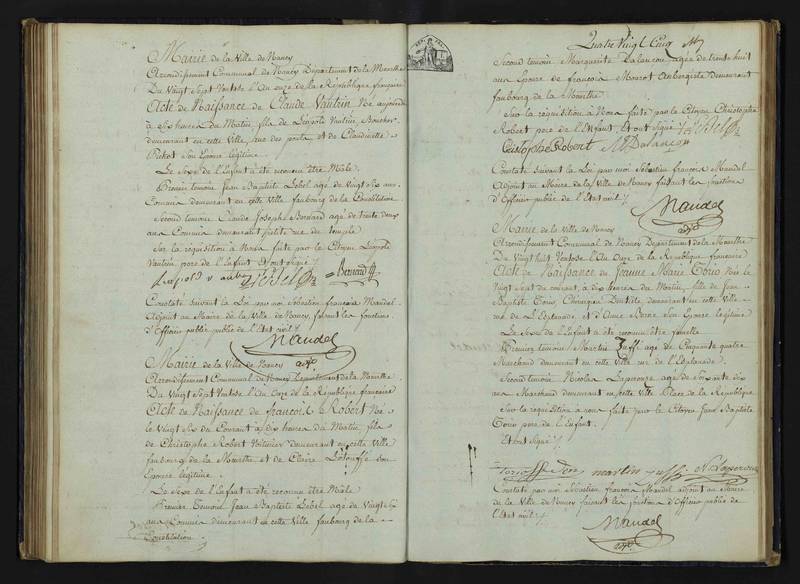 Mairie de la Ville de Nancy
Arrondissement Communal de Nancy Département de la Meurthe
Du Vingt Sept Ventose l'An onze de la République française
Acte de Naissance de Claude Vautrin Né aujourd
à Six heures du Matin, fils de Léopold Vautrin, Boucher
demeurant en cette Ville, rue des ponts et de Claudinette
Pichot Son Epouse légitime
Le Sexe de l'Enfant a été reconnu être Male
Premier temoin Jean Baptiste Lebel agé de Vingt Six ans
Commis demeurant en cette Ville faubourg de la Constitution
Second temoin Claude Joseph Bernard agé de trente deux
ans Commis demeurant petite rue du temple
Sur la requisition à Nous faite par le Citoyen Léopold
Vautrin pere de l'Enfant Et ont Signé
Bernard
Constaté suivant la Loi par moi Sébastien françois Mandel
Adjoint au Maire de la Ville de Nancy, faisant les fonctions
d'Officier public public de l'Etat civil
Mandel
adjt
Mairie de la Ville de Nancy
Arrondissement Communal de Nancy Département de la Meurthe
Du Vingt Sept Ventose l'An Onze de la République française
Acte de Naissance de françois Robert Né
le Vingt Six du Courant à dix heures du Matin, fils
de Christophe Robert Voiturier demeurant en cette Ville
faubourg de la Meurthe et de Claire Son
Epouse légitime
Le Sexe de l'Enfant a été reconnu être Male
Premier temoin Jean Baptiste Lebel agé de Vingt Six
ans Commis demeurant en cette Ville faubourg de la
Constitution
Quatre Vingt Cinq
Second temoin Marguerite Dalançon agée de trente huit
ans Epouse de françois Monrot Aubergiste demeurant
faubourg de la Meurthe
Sur la réquisition à Nous faite par le Citoyen Christophe
Robert pere de l'Enfant Et ont Signé
Cristophe Robert M Dalançon
Constaté suivant la Loi par moi Sébastien françois Mandel
Adjoint au Maire de la Ville de Nancy faisant les fonctions
d'Officier public de l'Etat civil
Mandel
adjt
Mairie de la Ville de Nancy
Arrondissement Communal de Nancy Département de la Meurthe
Du Vingt huit Ventose l'An Onze de la République française
Acte de Naissance de Jeanne Marie Née le
Vingt Sept du courant, à dix heures du Matin, fille de Jean
Baptiste Chirurgien Dentiste demeurant en cette Ville
rue de l'Esplanade, et d'Anne Son Epouse légitime
Le Sexe de l'Enfant a été reconnu être femelle
Premier temoin Martin agé de Cinquante quatre
Marchand demeurant en cette Ville rue de l'Esplanade
Second temoin Nicolas agé de Soixante dix
ans Marchand demeurant en cette Ville Place de la République
Sur la requisition a nous faite par le Citoyen Jean Baptiste
pere de l'Enfant.
Et ont Signé
martin
Constaté par moi Sébastien françois Mandel adjoint au Maire
de la Ville de Nancy faisant les fonctions d'Officier public de
l'Etat civil
Mandel
adjt